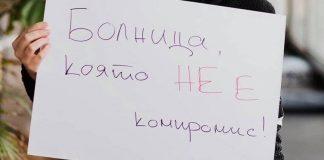 Болница,
която НЕ Е
комиромис!